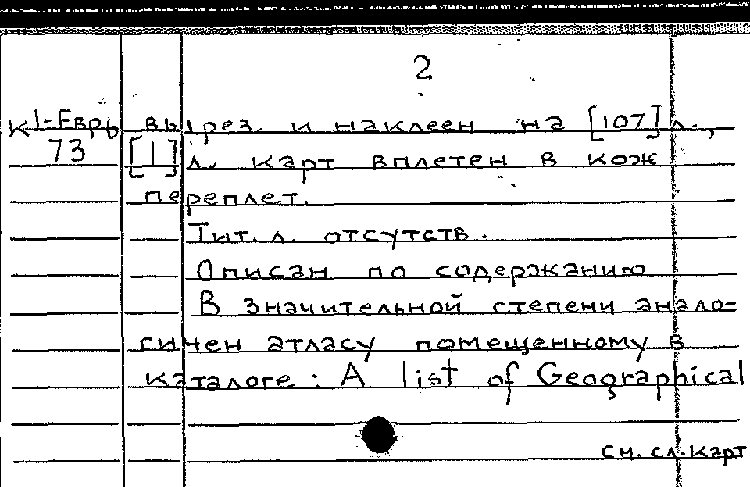 2
К1-Евро вырез. и наклеен на [107] л.,
73 [1] л. карт вплетен в кож
переплет.
Тит. л. отсутств.
Описан по содержанию
В значительной степени анало-
гичен атласу помещенному в
каталоге: A list of Geographical
см. сл. карт